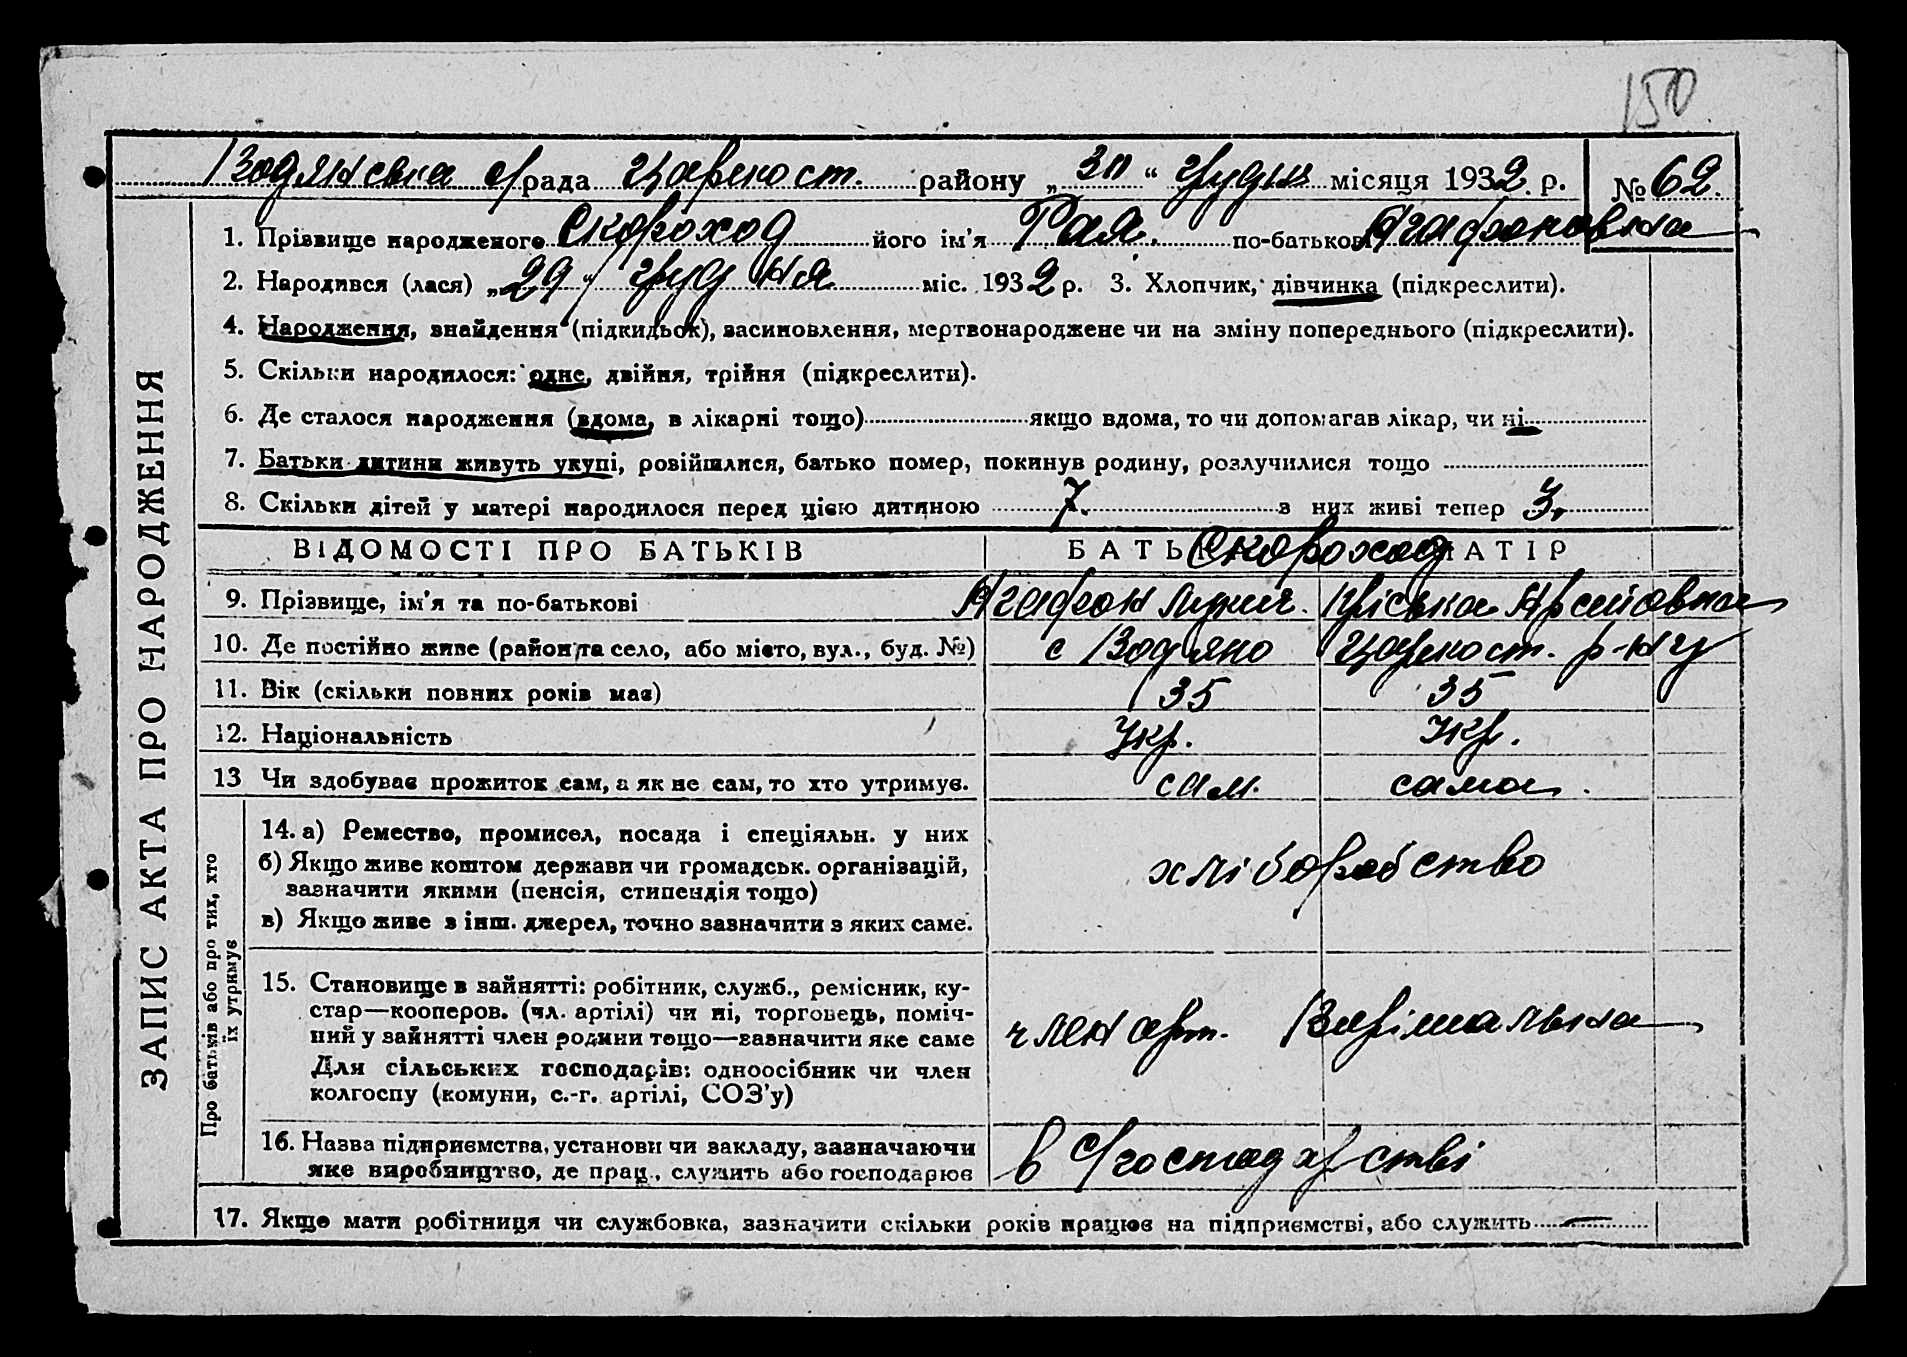 150
Водянська с/рада Царекост. району „30“ грудня місяця 1932 р. № 62.
1. Прізвище народженого Скороход його ім’я Рая. по-батькові Агафоновна
2. Народився (лася) „29“ грудня міс. 1932 р. 3. Хлопчик, дівчинка (підкреслити).
4. Народження, знайдення (підкидьок), засиновлення, мертвонароджене чи на зміну попереднього (підкреслити).
5. Скільки народилося: одне, двійня, трійня (підкреслити).
6. Де сталося народження (вдома, в лікарні тощо) якщо вдома, то чи допомагав лікар, чи ні
7. Батьки дитини живуть укупі, розійшлися, батько помер, покинув родину, розлучилися тощо
8. Скільки дітей у матері народилося перед цією дитиною 7. з них живі тепер 3.
ВІДОМОСТІ ПРО БАТЬКІВ БАТЬКО МАТІР
Скороход
9. Прізвище, ім’я та по-батькові Агафон Приська
10. Де постійно живе (район та село, або місто, вул., буд. №) с Водяно Царекост. р-ну
11. Вік (скільки повних років має) 35 35
12. Національність Укр. Укр.
13 Чи здобуває прожиток сам, а як не сам, то хто утримує. сам. сама.
14. а) Ремество, промисел, посада і спеціяльн. у них
б) Якщо живе коштом держави чи громадськ. організацій,
зазначити якими (пенсія, стипендія тощо)
хліборобство
в) Якщо живе з інш. джерел, точно зазначити з яких саме.
15. Становище в зайнятті: робітник, служб., ремісник, ку-
стар—кооперов. (чл. артілі) чи ні, торговець, поміч-
ний у зайнятті член родини тощо—зазначити яке саме
член арт. Вирішальна
Для сільських господарів: одноосібник чи член
колгоспу (комуни, с.-г. артілі, СОЗ’у)
16. Назва підприємства, установи чи закладу, зазначаючи
яке виробництво, де прац., служить або господарює
в с/господарстві
17. Якщо мати робітниця чи службовка, зазначити скільки років працює на підприємстві, або служить —
ЗАПИС АКТА ПРО НАРОДЖЕННЯ
Про батьків або про тих, хто
їх утримує